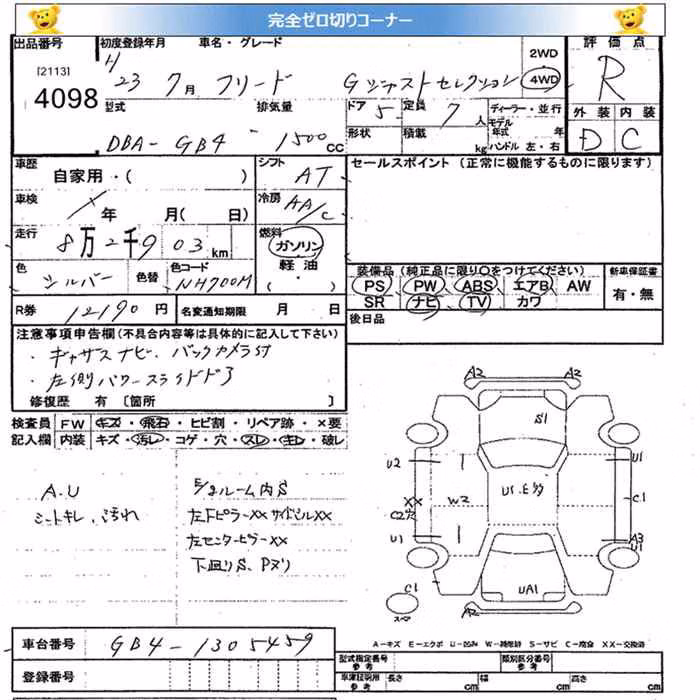 完全ゼロ切りコーナー
出品番号 初度登録年月 車名・グレード 評価点
[2113] H 2WD
4098 23 7月 フリード Gジャストセレクション 4WD R
型式 排気量 ドア 5 定員 7人 ディーラー・並行 外装 内装
形状 積載 kg モデル年式 年
DBA-GB4 1500cc ハンドル 左・右 D C
車歴 自家用・( ) シフト AT セールスポイント (正常に機能するものに限ります)
車検 年 月(日) 冷房 AA/C
走行 8万2千903km 燃料 ガソリン
軽油
・( )
色 シルバー 色替 色コード NH700M
装備品 (純正品に限り○をつけてください) 新車保証書
PS PW ABS エアB AW 有・無
SR ナビ TV カワ
R券 12190円 名変通知期限 月 日
後日品
注意事項申告欄(不具合内容等は具体的に記入して下さい)
・ギャザズナビ、バックカメラ付
・左側パワースライドドア
修復歴 有 〔箇所 〕
検査員 FW キズ・飛石・ヒビ割・リペア跡・×要
記入欄 内装 キズ・汚レ・コゲ・穴・スレ・キレ・破レ
A.U
シートキレ、汚れ
ルーム内S
左Fピラーxx サイドシルxx
左センターピラーxx
下廻りS、Pヌリ
A2 A2
S1
U2 U1
U1.E多
XX W2 C1
C2穴
U1 A3
U1
C1 UA1
スペア A2
A-キズ E-エクボ U-凹み W-補修跡 S-サビ C-腐食 XX-交換済
車台番号 GB4-1305459
登録番号
型式指定番号 参考 類別区分番号 参考
車庫証明用 参考 長さ cm 幅 cm 高さ cm